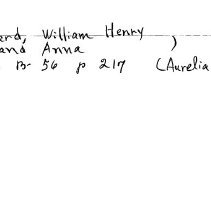 ard, William Henry
and Anna )
B- 56 p 217 (Aurelia